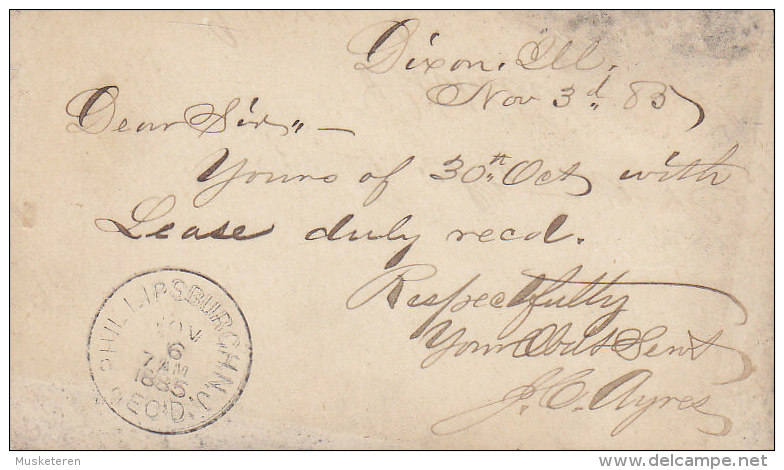 Dixon, Ill.
Nov 3d 85
Dear Sir,, —
Yours of 30th Oct with
Lease duly recd.
Respectfully
Your Obdt Servt
J. C. Ayres
PHILLIPSBURGH N.J.
NOV
6
7 AM
1885
REC'D.
Musketeren
delcampe.net